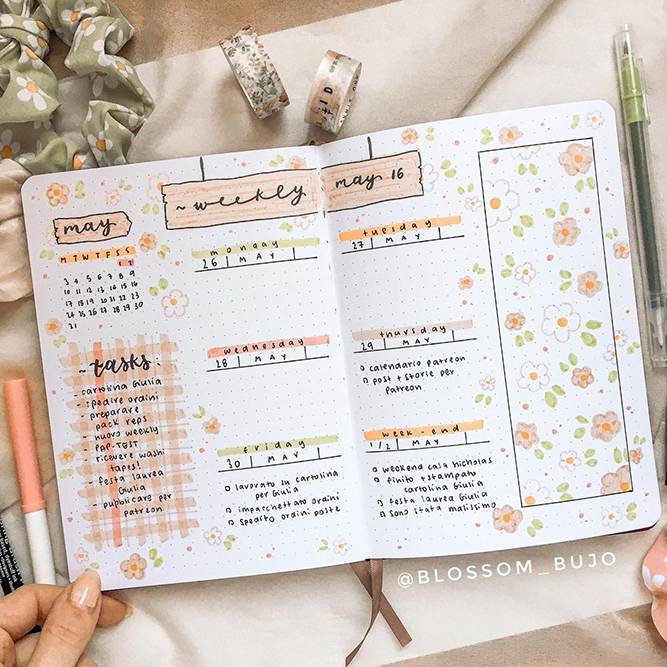 ~ weekly
may 16
may
M T W T F S S
1 2
3 4 5 6 7 8 9
10 11 12 13 14 15 16
17 18 19 20 21 22 23
24 25 26 27 28 29 30
31
~ tasks:
- cartolina Giulia
- spedire ordini
- preparare
pack reps
- nuovo weekly
- PAP-TEST
- ricevere washi
tapes!
- festa laurea
Giulia
- pubblicare per
patreon
monday
26 | MAY
wednesday
28 | MAY
friday
30 | MAY
□ lavorato su cartolina
per Giulia
□ impacchettato ordini
□ spedito ordini poste
tuesday
27 | MAY
thursday
29 | MAY
□ calendario patreon
□ post + storie per
Patreon
week-end
1/2 | MAY
□ weekend casa nicholas
□ finito + stampato
cartolina Giulia
□ festa laurea Giulia
□ sono stata malissimo
@BLOSSOM_BUJO